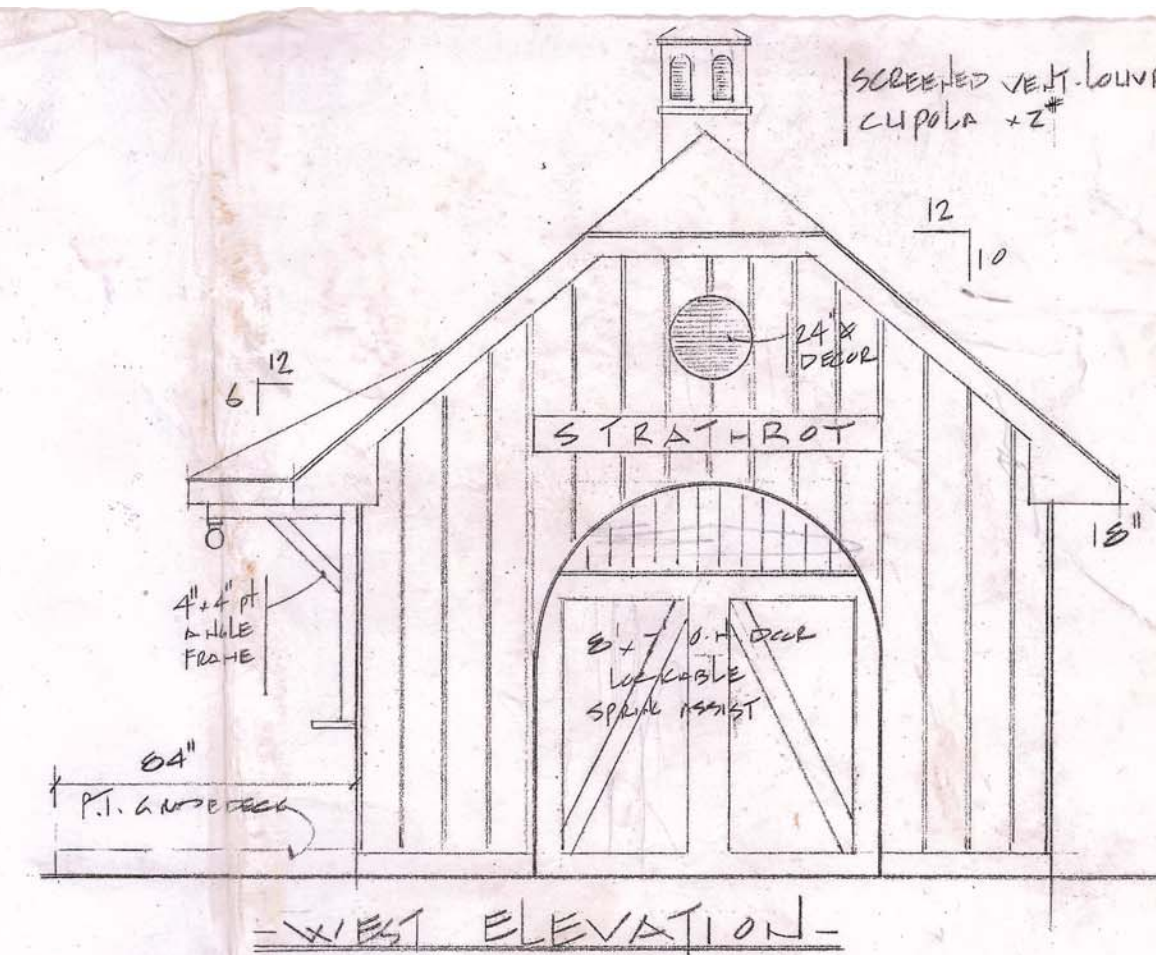 SCREENED VENT-LOUVR
CUPOLA x 2#
12
10
24" ø
DECOR
12
6
STRATHROT
18"
4"x4" pt
ANGLE
FRAME
8' x 7' O.H. DOOR
LOCKABLE
SPRING ASSIST
84"
P.T. GRADE DECK
- WEST ELEVATION -